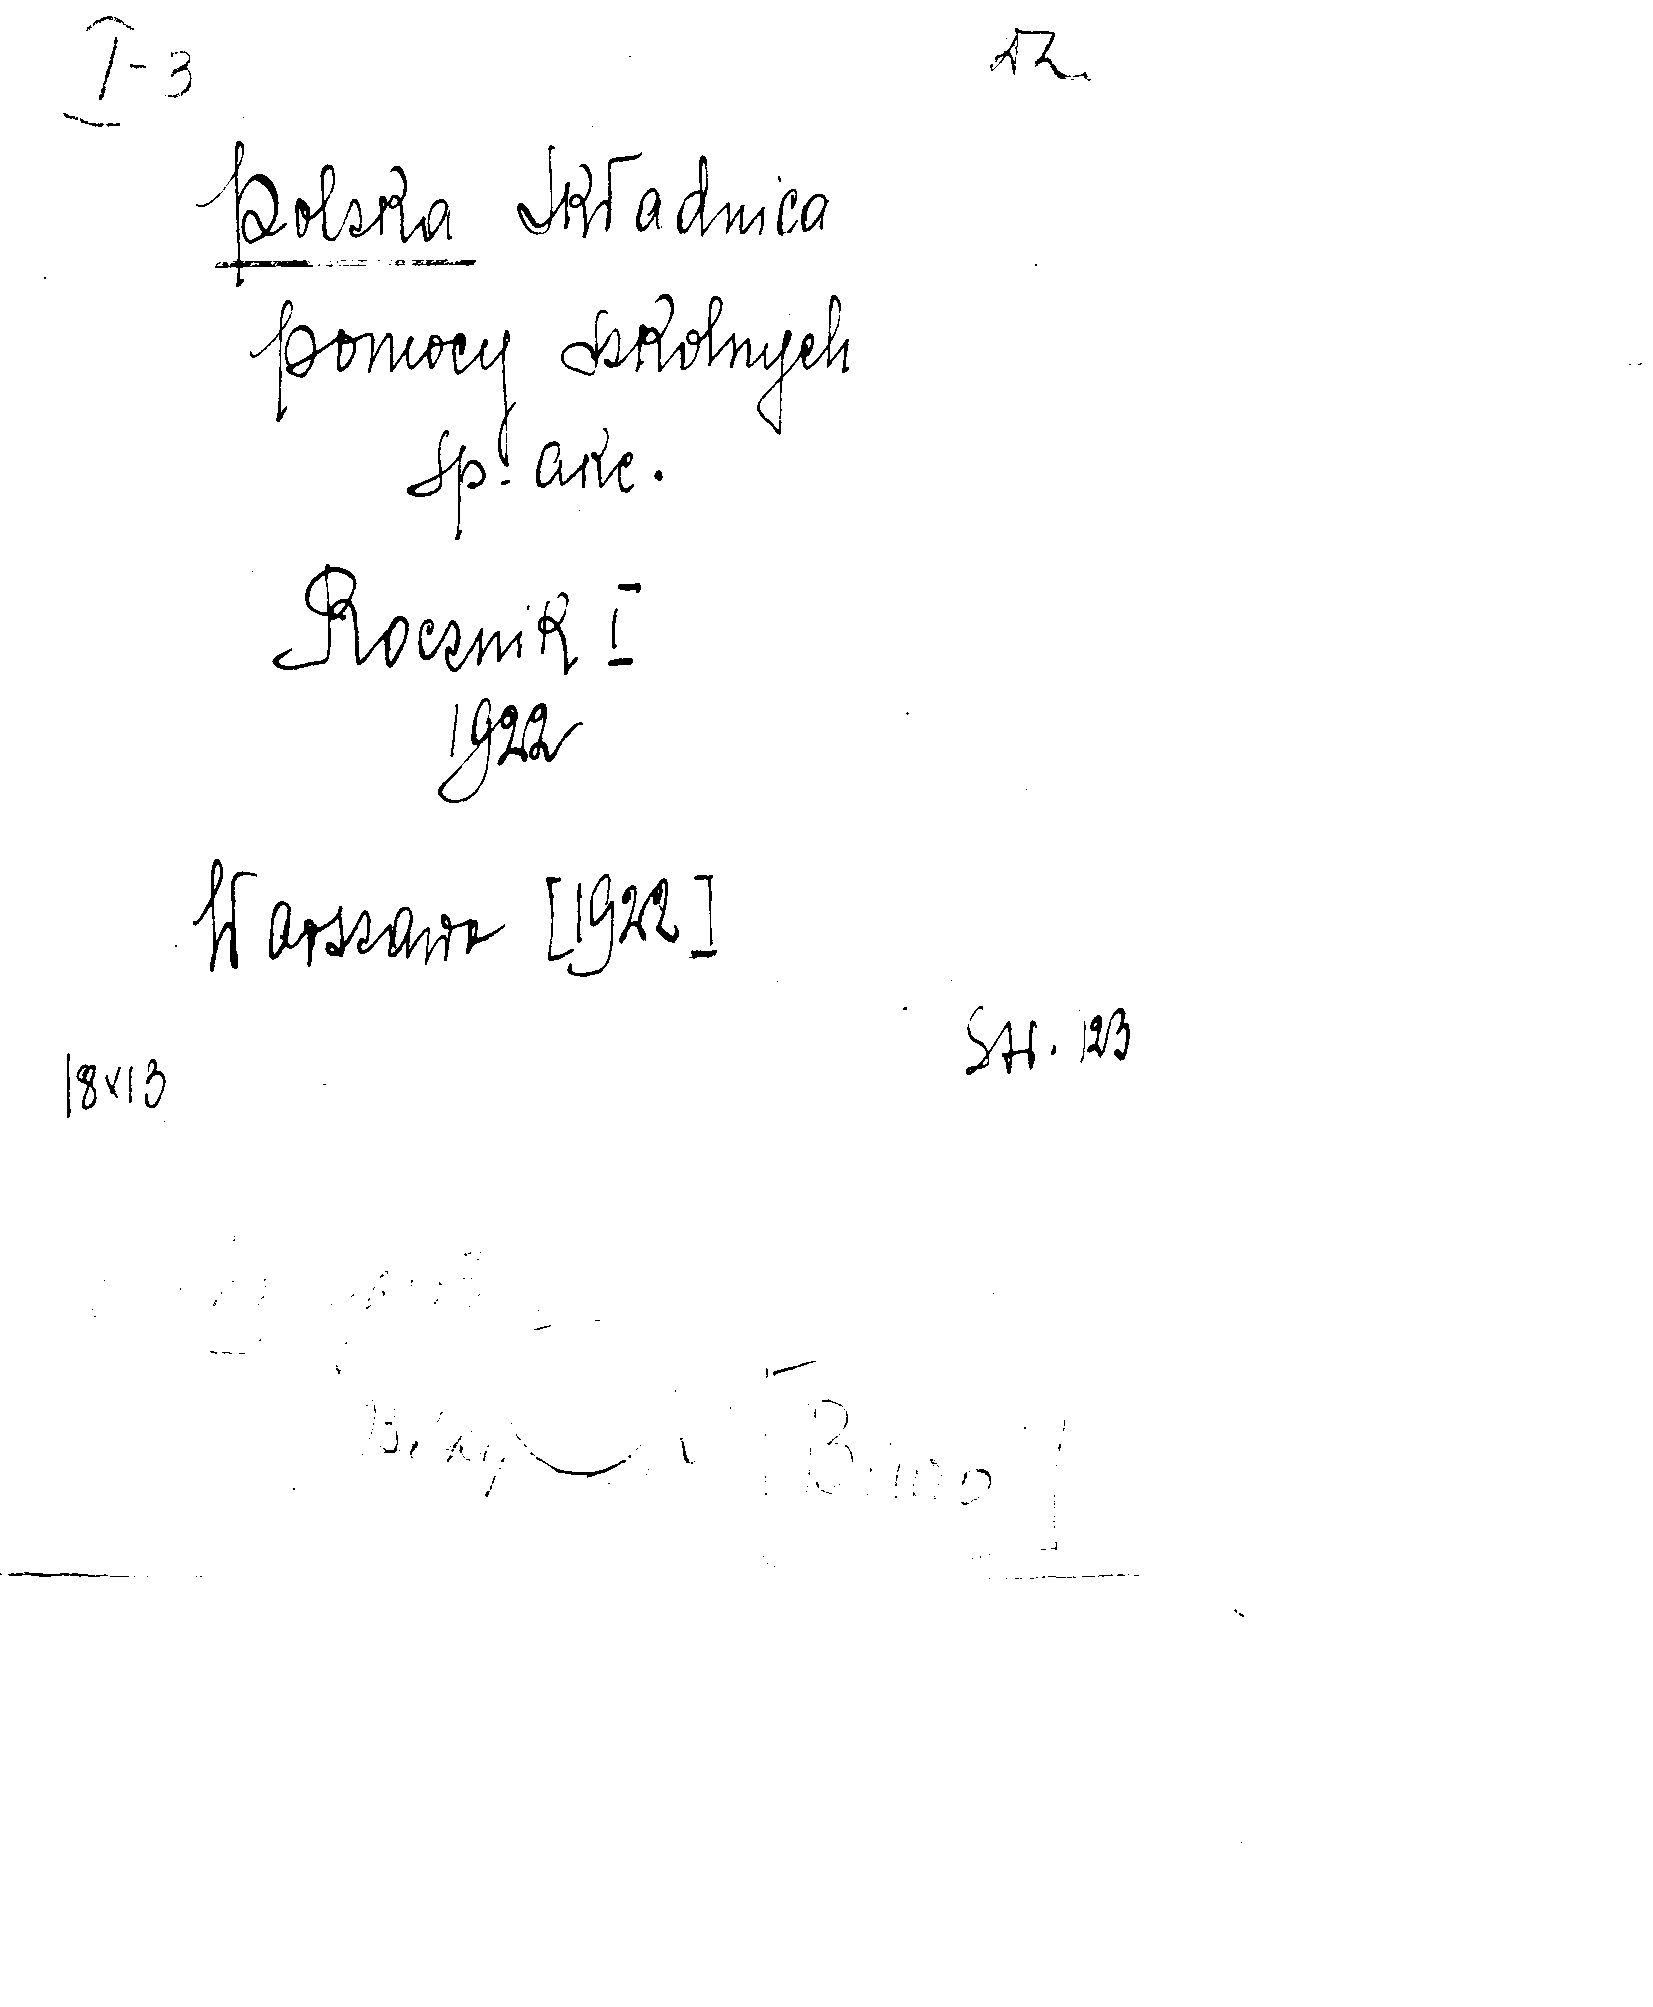 I-3
Polska Składnica
pomocy szkolnych
sp. akc.
Rocznik I
1922
Warszawa [1922]
Str. 123
18x13
[Biuro]